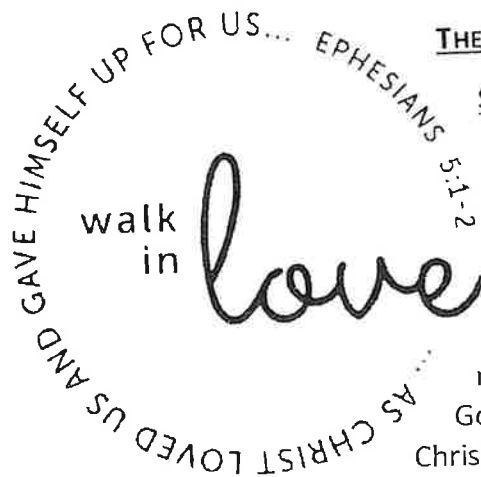 walk
in
love
... AS CHRIST LOVED US AND GAVE HIMSELF UP FOR US... EPHESIANS 5:1-2
THE
Chris